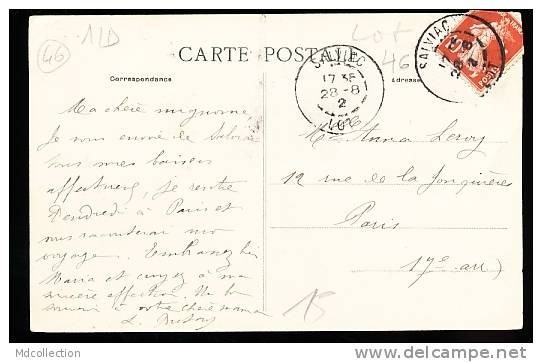 46
11D
Lot
46
CARTE POSTALE
Correspondance
Adresse
SALVIAC
17 35
28-8
2
LOT
SALVIAC
28-8
Ma chère mignonne,
Je vous envoie de
tous mes baisers
affectueux, je rentre
Vendredi à Paris et
vous raconterai mon
voyage. Embrassez bien
Maria et croyez à ma
sincère affection. Un bon
à votre chère maman
L.
Anna Leroy
12 rue de la Jonquière
Paris
17e arr)
15
Mdcollection
www.delcampe.net